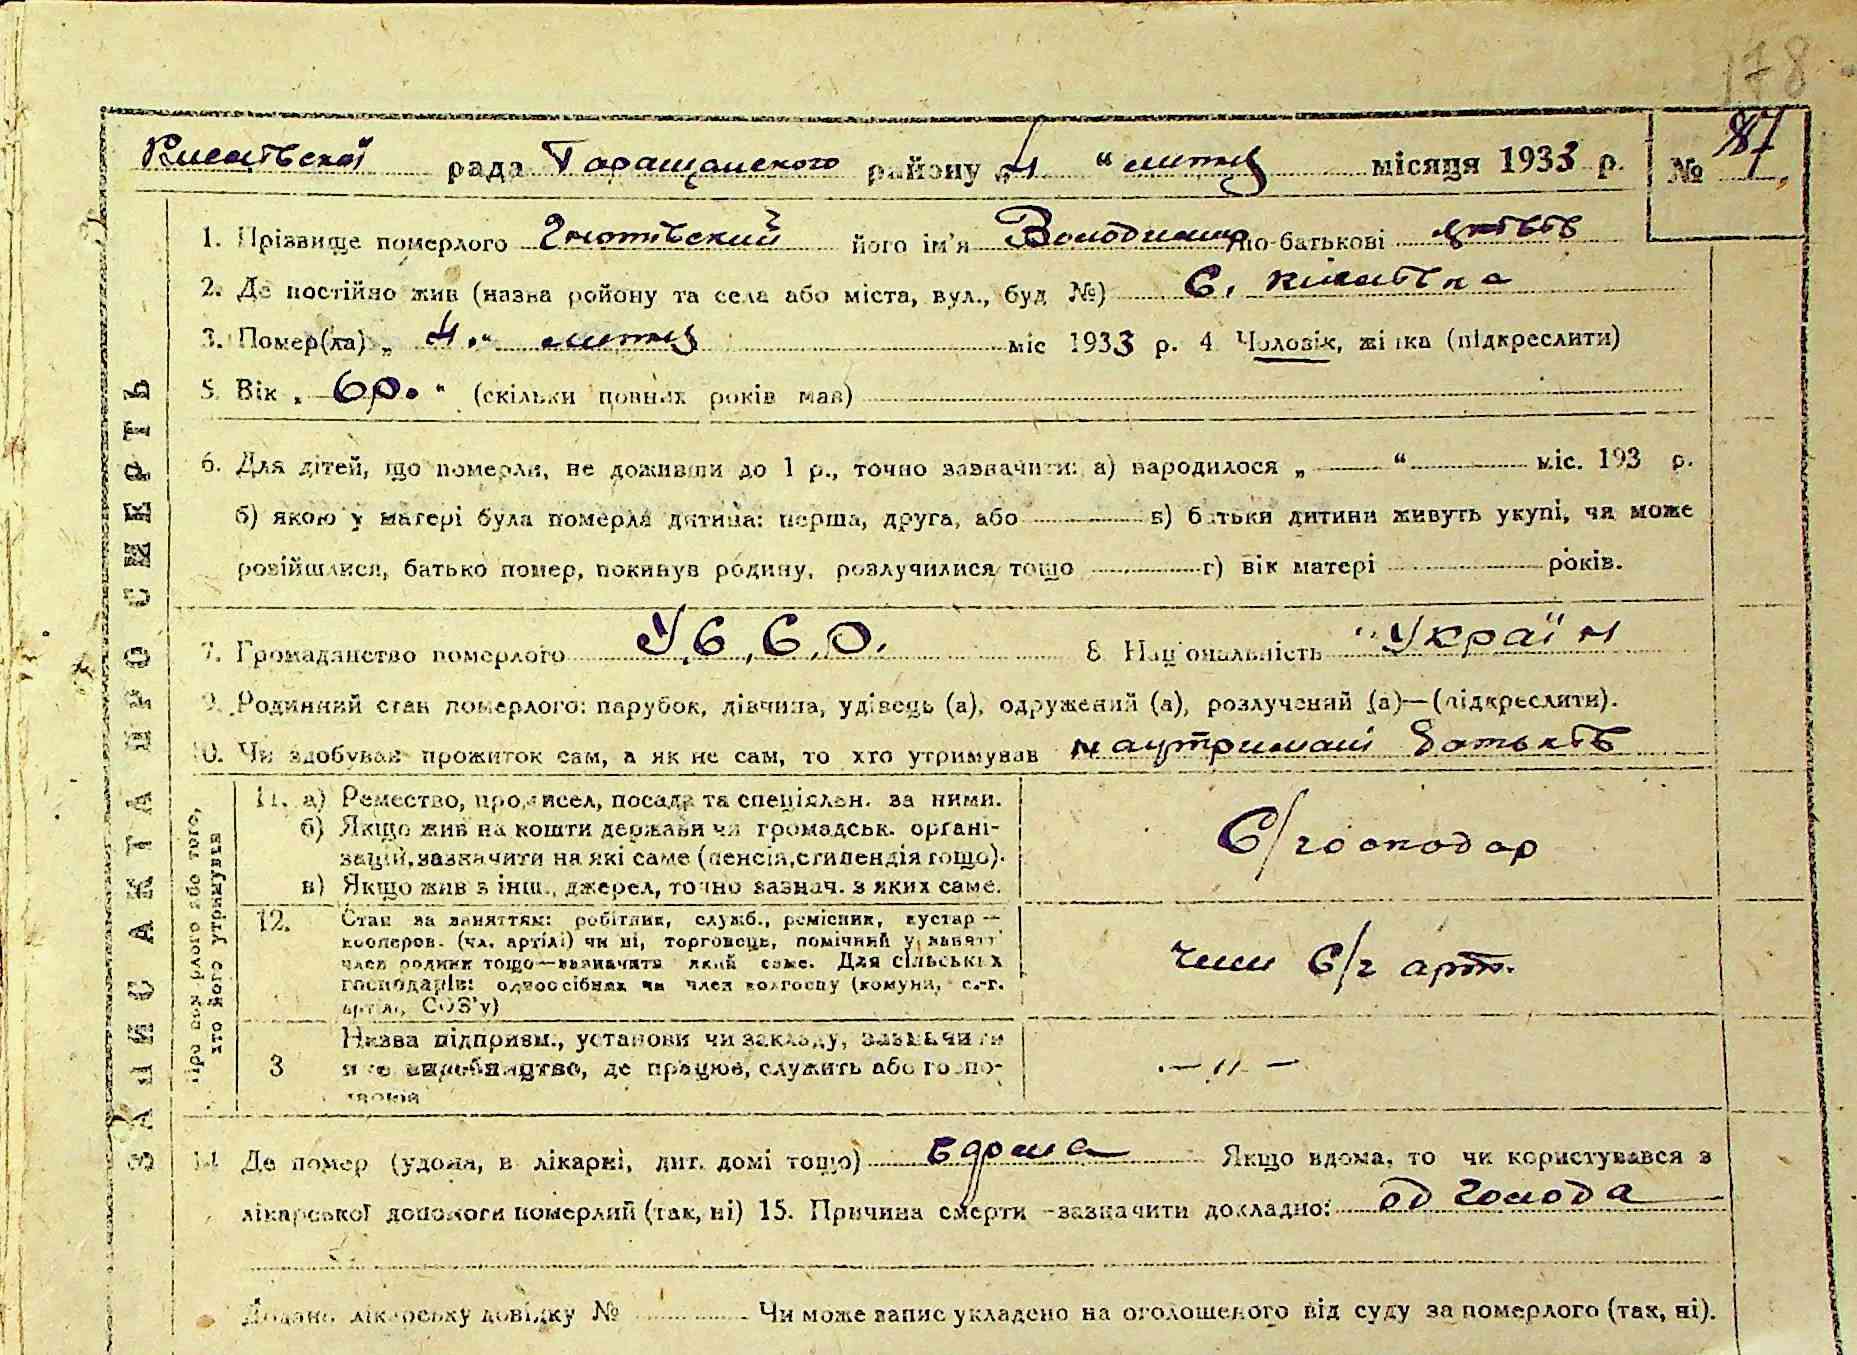 178
рада Таращанского району „4 “ лютня місяця 1933 р. № 87
1. Прізвище померлого Гнотівский його ім'я Володимир по-батькові
2. Де постійно жив (назва ройону та села або міста, вул., буд №) С. Кислівка
3. Помер(ла) „ 4 “ лютня міс 1933 р. 4 Чоловік, жінка (підкреслити)
5. Вік „ 6 р. “ (скільки повних років мав)
6. Для дітей, що померли, не доживши до 1 р., точно зазначити: а) народилося „ “ міс. 193 р.
б) якою у матері була померла дитина: перша, друга, або в) батьки дитини живуть укупі, чи може
розійшлися, батько помер, покинув родину, розлучилися тощо г) вік матері років.
7. Громадянство померлого У.С.С.Р. 8 Національність Україн
9. Родинний стан померлого: парубок, дівчина, удівець (а), одружений (а), розлучений (а)—(підкреслити).
10. Чи здобував прожиток сам, а як не сам, то хто утримував на утримані батьків
ЗАПИС АКТА ПРО СМЕРТЬ
Про померлого або того,
хто його утримував
11. а) Ремество, промисел, посада та спеціялен. за ними.
б) Якщо жив на кошти держави чи громадськ. органі-
зацій, зазначити на які саме (пенсія, стипендія тощо).
в) Якщо жив з інш., джерел, точно зазнач. з яких саме.
С/господар
12. Стан за заняттям: робітник, служб., ремісник, кустар —
кооперов. (чл. артілі) чи ні, торговець, помічний у занятт
член родини тощо—зазначити який саме. Для сільських
господарів: одноосібник чи член колгоспу (комуни, с.-г.
артілі, СОЗ'у)
член С/г арт.
3 Назва підприєм., установи чи закладу, зазначити
яке виробництво, де працює, служить або госпо-
- „ -
14 Де помер (удома, в лікарні, дит. домі тощо) вдома Якщо вдома, то чи користувався з
лікарської допомоги померлий (так, ні) 15. Причина смерти - зазначити докладно: од голода
Додано лікарську довідку № Чи може запис укладено на оголошеного від суду за померлого (так, ні).